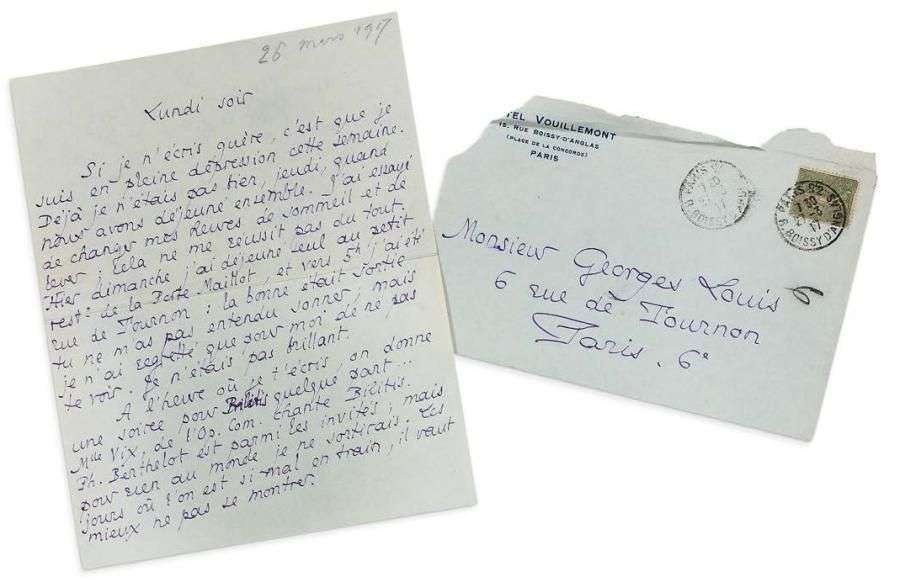 26 mars 1917
Lundi soir
Si je n'écris guère, c'est que je
suis en pleine dépression cette semaine.
Déjà je n'étais pas bien, jeudi, quand
nous avons déjeuné ensemble. J'ai essayé
de changer mes heures de sommeil et de
lever ; cela ne me réussit pas du tout.
Hier dimanche j'ai déjeuné seul au petit
restt de la Porte Maillot, et vers 5h j'ai été
rue de Tournon : la bonne était sortie
tu ne m'as pas entendu sonner, mais
je n'ai regretté que pour moi de ne pas
te voir. Je n'étais pas brillant.
A l'heure où je t'écris on donne
une soirée pour Bilitis quelque part...
Mlle Vix, de l'Op. Com. chante Bilitis.
Ph. Berthelot est parmi les invités ; mais
pour rien au monde je ne sortirais. Les
jours où l'on est si mal en train, il vaut
mieux ne pas se montrer.
TEL VOUILLEMONT
15, RUE BOISSY-D'ANGLAS
(PLACE DE LA CONCORDE)
PARIS
Monsieur Georges Louis
6 rue de Tournon
Paris. 6e
6
PARIS
R. BOISSY D'AN
PARIS 82
R. BOISSY D'ANGLAS